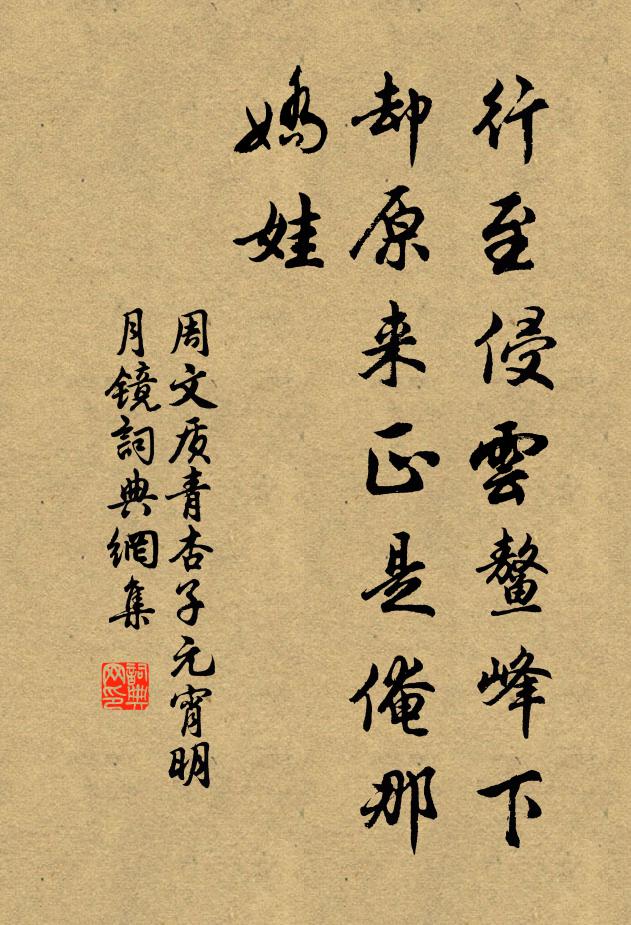 行至侵雲鼇峰下
却原来正是俺那
嬌娃
周文质青杏子元宵明
月镜詞典網集
詞典
网印